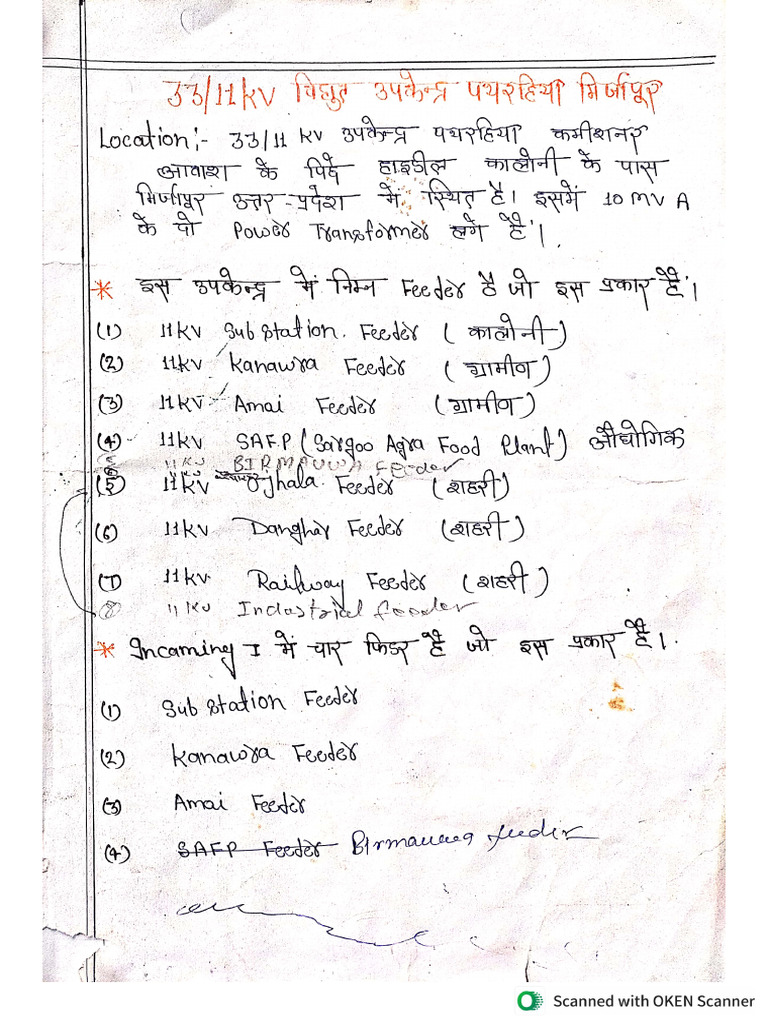 33/11 KV विद्युत उपकेन्द्र पथरहिया मिर्जापूर
Location:- 33/11 KV उपकेन्द्र पथरहिया कमीशनर
आवाश के पिछे हाइडील कालोनी के पास
मिर्जापूर उत्तर-प्रदेश में स्थित है। इसमें 10 MVA
के दो Power Transformer लगे हैं।
* इस उपकेन्द्र में निम्न Feeder है जो इस प्रकार हैं।
(1) 11KV Sub Station. Feeder ( कालोनी )
(2) 11KV Kanawra Feeder ( ग्रामीण )
(3) 11KV Amai Feeder ( ग्रामीण )
(4) 11KV SAFP (Sargoo Agra Food Plant) औधोगिक
11KV BIRMAUWA Feeder
(5) 11KV Ojhala Feeder ( शहरी )
(6) 11KV Danghar Feeder ( शहरी )
(7) 11KV. Railway Feeder ( शहरी )
(8) 11KV Indastrial feeder
* Incaming I में चार फिडर है जो इस प्रकार है।
(1) Sub Station Feeder
(2) Kanawra Feeder
(3) Amai Feeder
(4) SAFP Feeder Birmauwa feeder
Scanned with OKEN Scanner